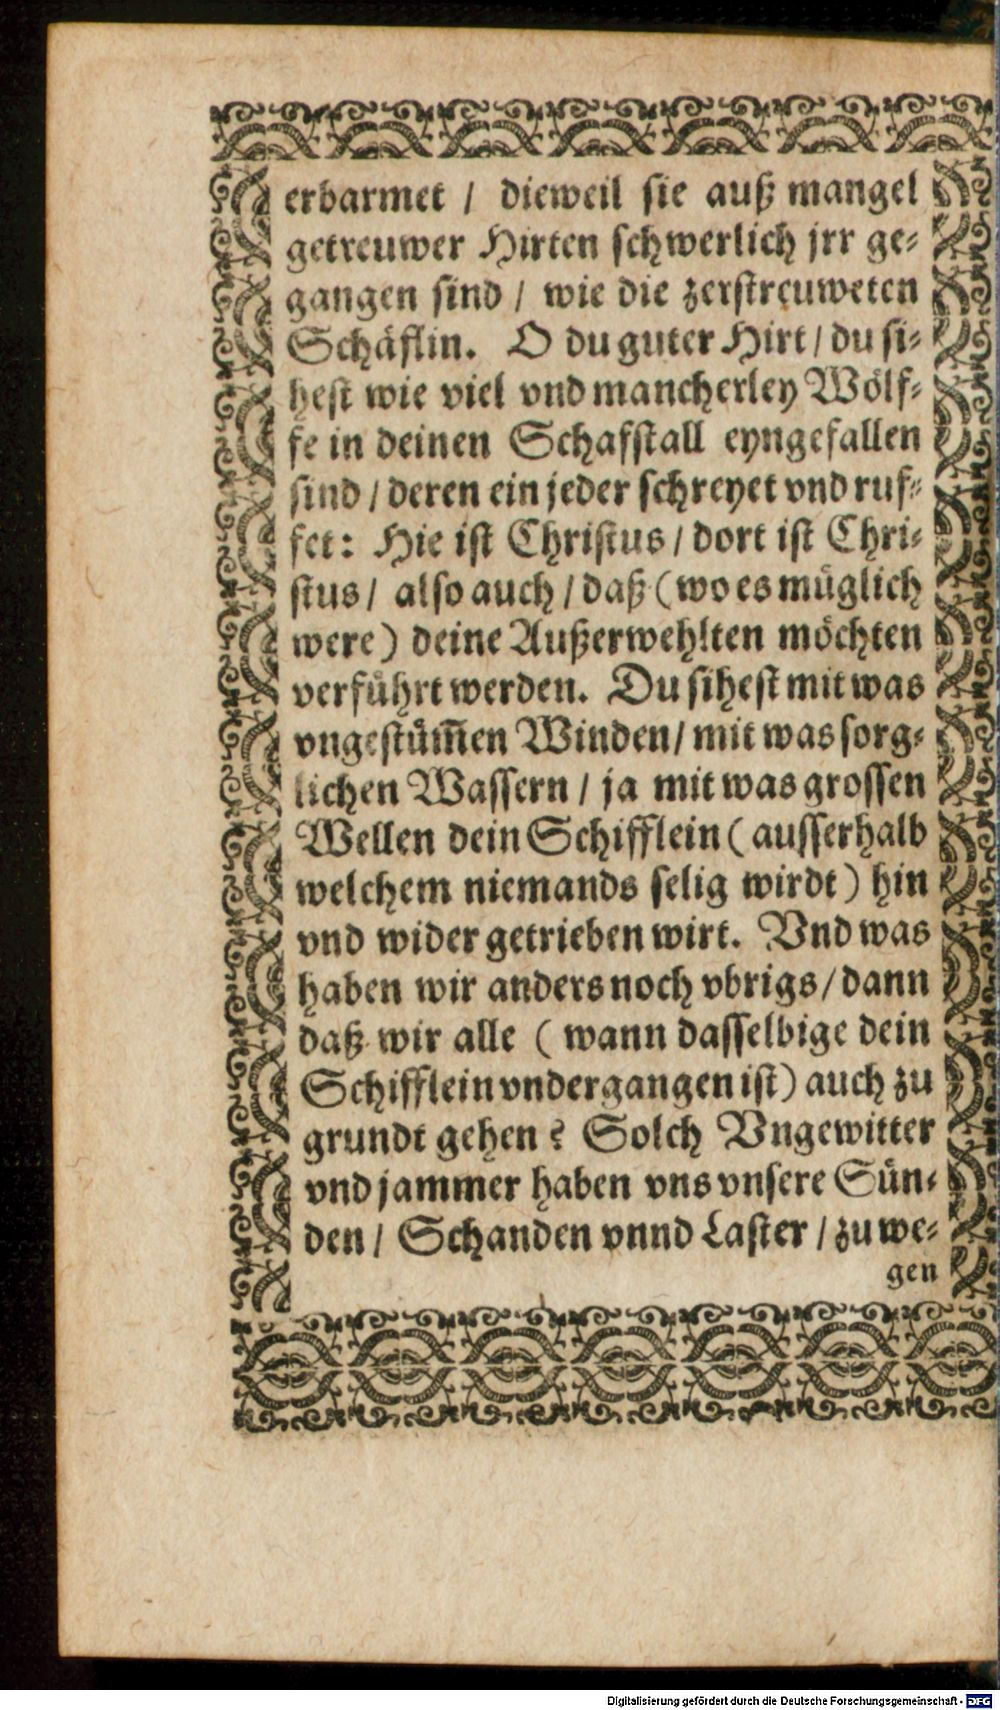 erbarmet / dieweil sie auß mangel
getreuwer Hirten schwerlich jrr ge-
gangen sind / wie die zerstreuweten
Schäflin. O du guter Hirt / du si-
hest wie viel vnd mancherley Wölf-
fe in deinen Schafstall eyngefallen
sind / deren ein jeder schreyet vnd ruf-
fet: Hie ist Christus / dort ist Chri-
stus / also auch / daß (wo es müglich
were) deine Außerwehlten möchten
verführt werden. Du sihest mit was
vngestüm̃en Winden / mit was sorg-
lichen Wassern / ja mit was grossen
Wellen dein Schifflein (ausserhalb
welchem niemands selig wirdt) hin
vnd wider getrieben wirt. Vnd was
haben wir anders noch vbrigs / dann
daß wir alle (wann dasselbige dein
Schifflein vndergangen ist) auch zu
grundt gehen? Solch Vngewitter
vnd jammer haben vns vnsere Sün-
den / Schanden vnnd Laster / zu we-
gen
Digitalisierung gefördert durch die Deutsche Forschungsgemeinschaft - DFG